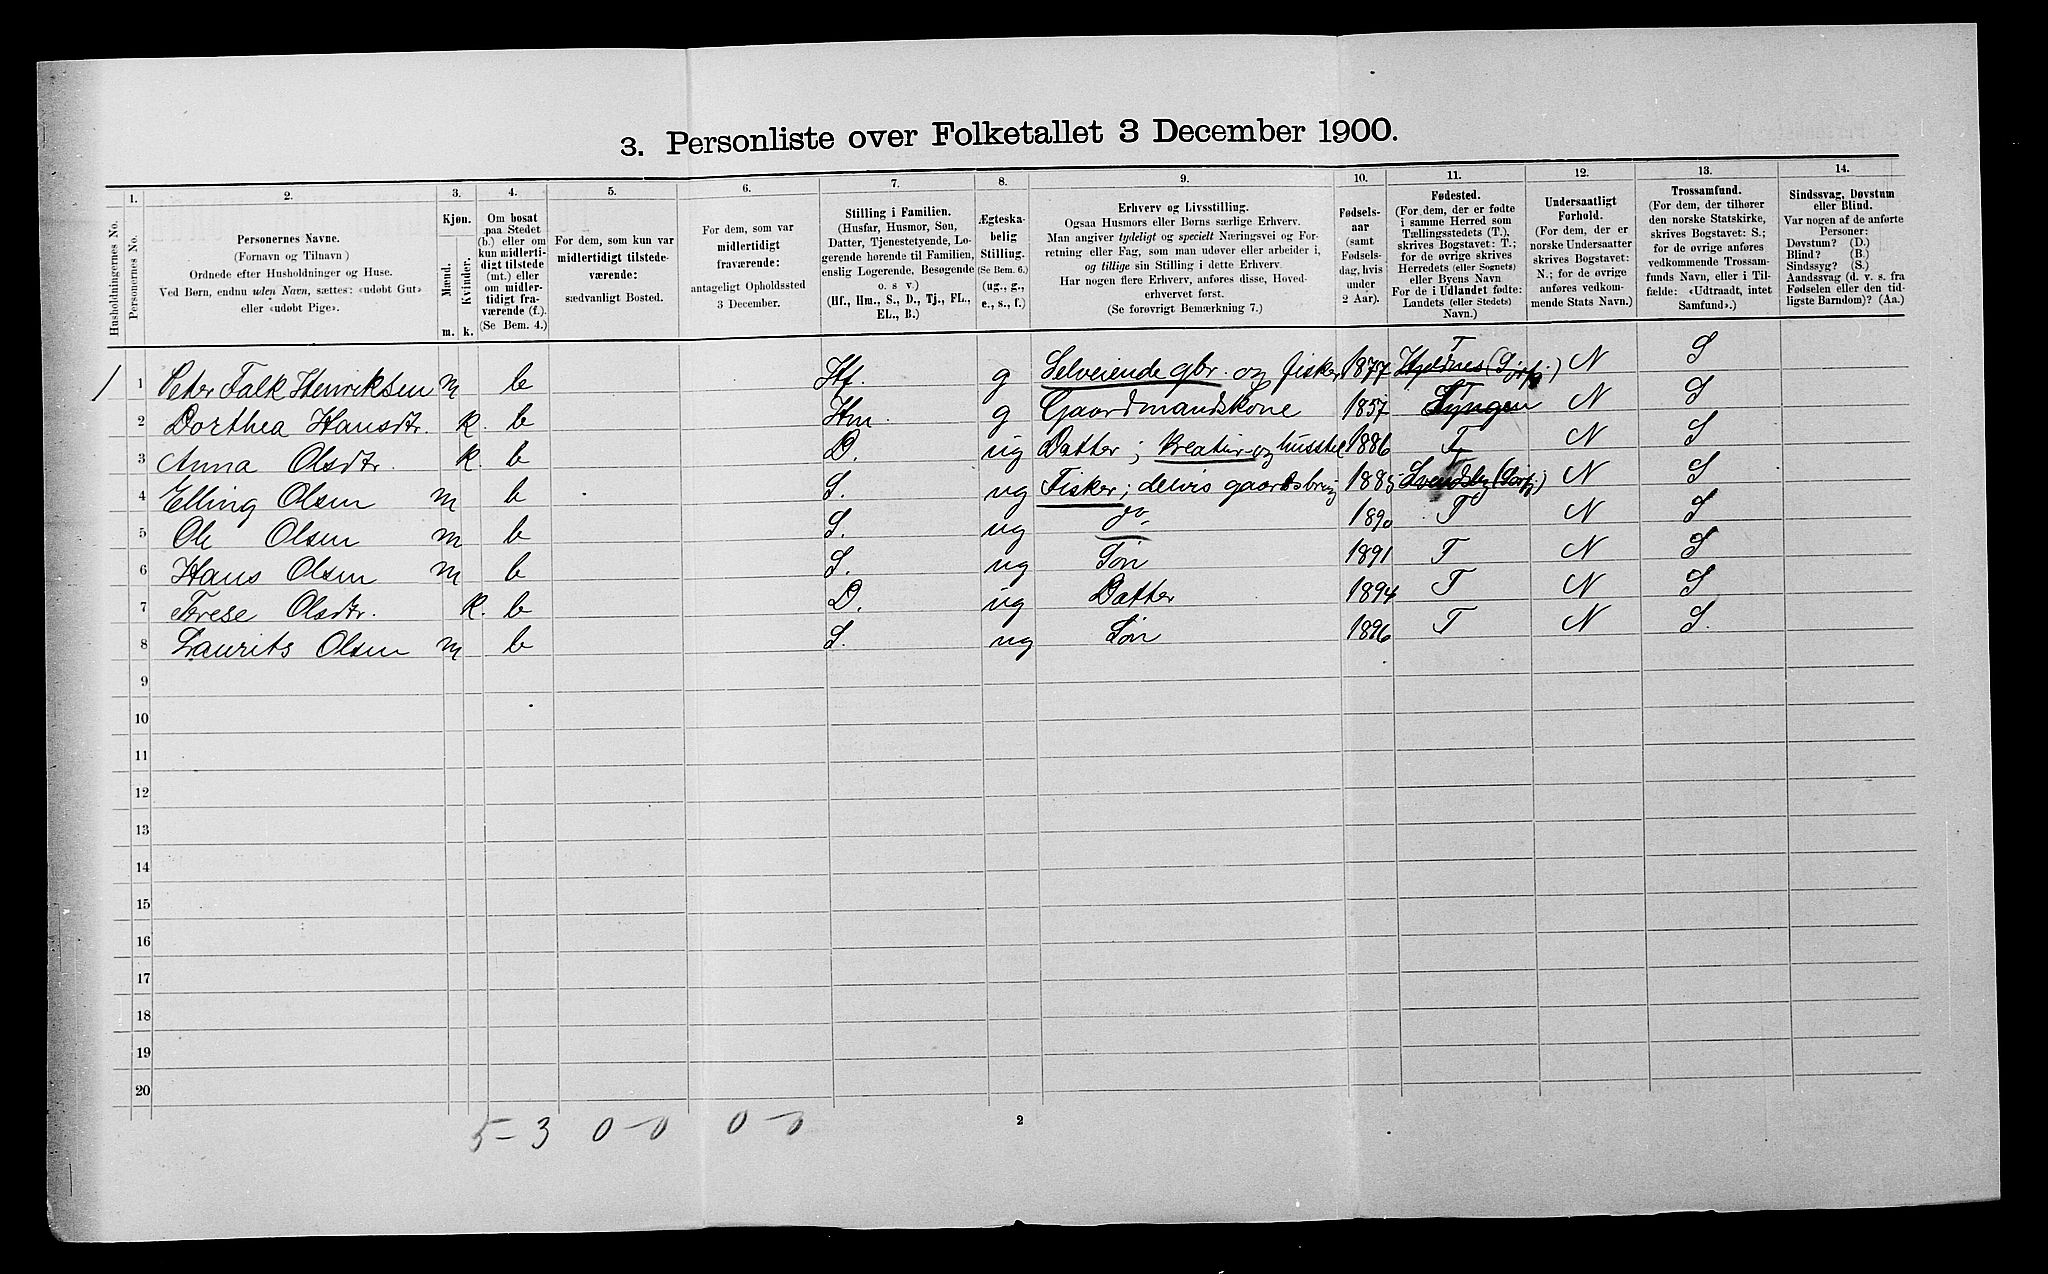 3. Personliste over Folketallet 3 December 1900.
1. 2. 3. 4. 5. 6. 7. 8. 9. 10. 11. 12. 13. 14.
Husholdningernes No.
Personernes No.
Personernes Navne.
(Fornavn og Tilnavn)
Ordnede efter Husholdninger og Huse.
Ved Børn, endnu uden Navn, sættes: «udøbt Gut»
eller «udøbt Pige».
Kjøn.
Mænd.
Kvinder.
m. k.
Om bosat
paa Stedet
(b.) eller om
kun midlerti-
digt tilstede
(mt.) eller
om midler-
tidigt fra-
værende (f.).
(Se Bem. 4.)
For dem, som kun var
midlertidigt tilstede-
værende:
sædvanligt Bosted.
For dem, som var
midlertidigt
fraværende:
antageligt Opholdssted
3 December.
Stilling i Familien.
(Husfar, Husmor, Søn,
Datter, Tjenestetyende, Lo-
gerende hørende til Familien,
enslig Logerende, Besøgende
o. s. v.)
(Hf., Hm., S., D., Tj., FL.,
EL., B.)
Ægteska-
belig
Stilling.
(Se Bem. 6.)
(ug., g.,
e., s., f.)
Erhverv og Livsstilling.
Ogsaa Husmors eller Børns særlige Erhverv.
Man angiver tydeligt og specielt Næringsvei og For-
retning eller Fag, som man udøver eller arbeider i,
og tillige sin Stilling i dette Erhverv.
Har nogen flere Erhverv, anføres disse, Hoved-
erhvervet først.
(Se forøvrigt Bemærkning 7.)
Fødsels-
aar
(samt
Fødsels-
dag, hvis
under
2 Aar).
Fødested.
(For dem, der er fødte
i samme Herred som
Tællingsstedets (T.),
skrives Bogstavet: T.;
for de øvrige skrives
Herredets (eller Sognets)
eller Byens Navn
For de i Udlandet fødte:
Landets (eller Stedets)
Navn.)
Undersaatligt
Forhold.
(For dem, der er
norske Undersaatter
skrives Bogstavet:
N.; for de øvrige
anføres vedkom-
mende Stats Navn.)
Trossamfund.
(For dem, der tilhører
den norske Statskirke,
skrives Bogstavet: S.;
for de øvrige anføres
vedkommende Trossam-
funds Navn, eller i Til-
fælde: «Udtraadt, intet
Samfund».)
Sindssvag, Døvstum
eller Blind.
Var nogen af de anførte
Personer:
Døvstum? (D.)
Blind? (B.)
Sindssyg? (S.)
Aandssvag (d. v. s. fra
Fødselen eller den tid-
ligste Barndom)? (Aa.)
1 1 Peter Falk Henriksen m b Hf. g Selveiende gbr. og fisker 1877 T N S
2 Dorthea Hansdtr. k. b Hm. g Gaardmandskone 1857 T Lyngen N S
3 Anna Olsdtr. k. b D. ug Datter; kreatur- og husstel 1886 T N S
4 Elling Olsen m b S. ug Fisker; delvis gaardsbrug 1885 T Svendsby N S
5 Ole Olsen m b S. ug do. 1890 T N S
6 Hans Olsen m b S. ug Søn 1891 T N S
7 Terese Olsdtr. k. b D. ug Datter 1894 T N S
8 Laurits Olsen m b S. ug Søn 1896 T N S.
9
10
11
12
13
14
15
16
17
18
19
20
5-3 0-0 0-0
2